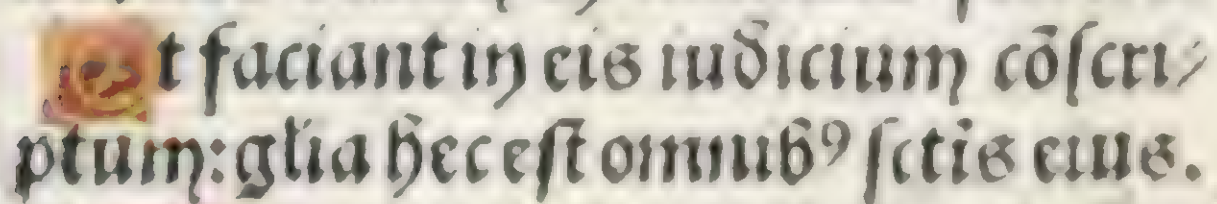 Et faciant in eis iudicium cõſcri⸗
ptum: gl̃ia hec eſt omnibꝰ ſctĩs eius.